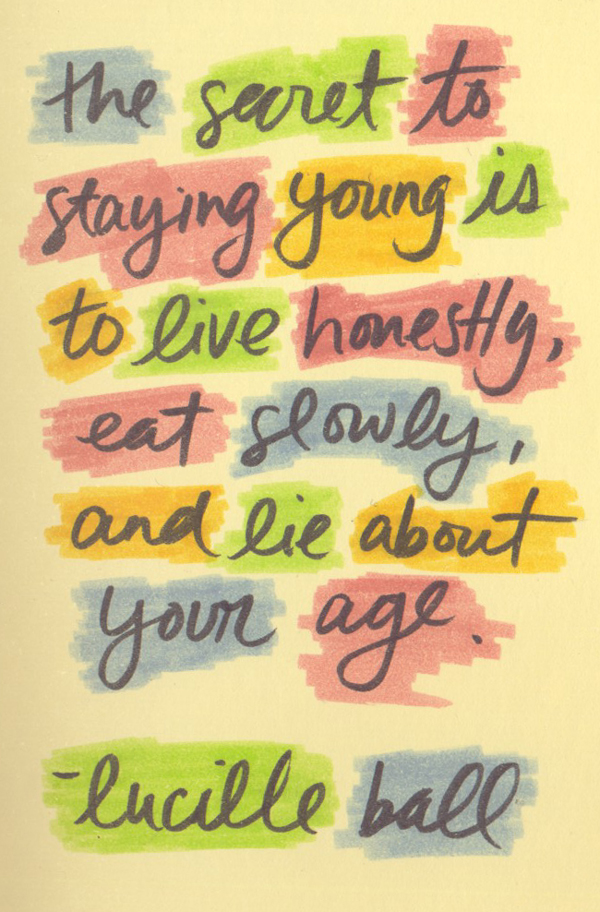 the secret to
staying young is
to live honestly,
eat slowly,
and lie about
your age.
-lucille ball